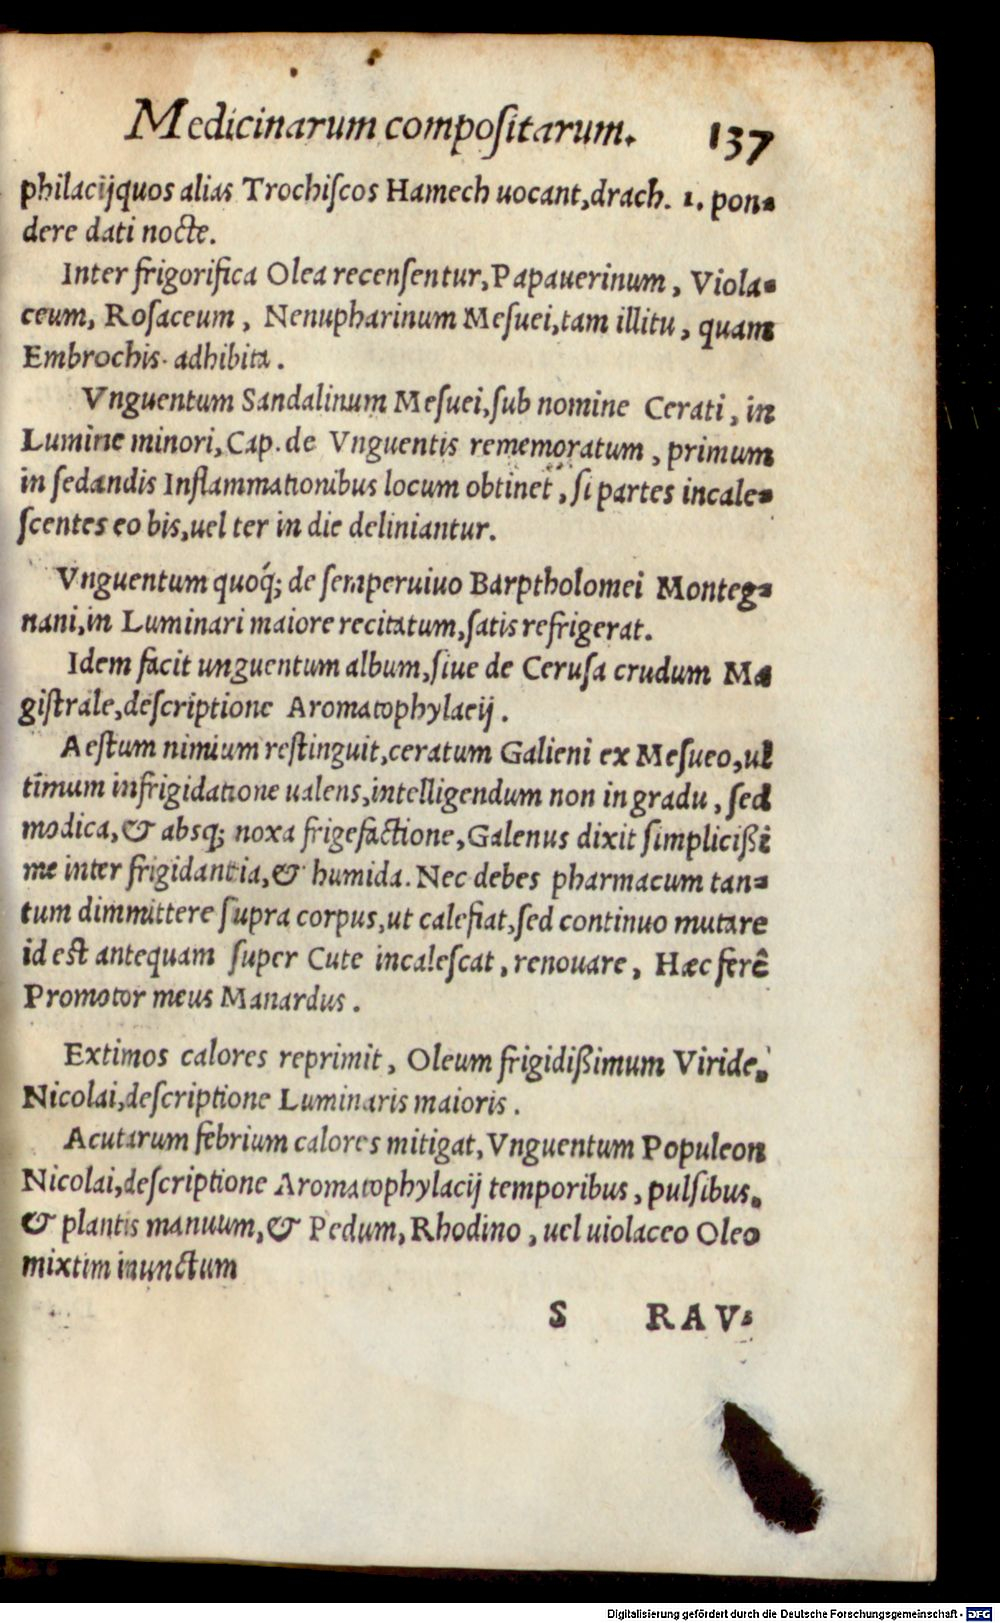 Medicinarum compoſitarum. 137
philacijquos alias Trochiſcos Hamech uocant,drach. 1. pon-
dere dati nocte.
Inter frigorifica Olea recenſentur,Papauerinum, Viola-
ceum, Roſaceum, Nenupharinum Meſuei,tam illitu, quam
Embrochis adhibita.
Vnguentum Sandalinum Meſuei,ſub nomine Cerati, in
Lumine minori,Cap. de Vnguentis rememoratum, primum
in ſedandis Inflammationibus locum obtinet, ſi partes incale-
ſcentes eo bis,uel ter in die deliniantur.
Vnguentum quoq́; de ſemperuiuo Barptholomei Monteg-
nani,in Luminari maiore recitatum,ſatis refrigerat.
Idem facit unguentum album,ſiue de Ceruſa crudum Ma
giſtrale,deſcriptione Aromatophylacij.
Aeſtum nimium reſtinguit,ceratum Galieni ex Meſueo,ul
timum infrigidatione ualens,intelligendum non in gradu, ſed
modica,& absq; noxa frigefactione,Galenus dixit ſimpliciſſi
me inter frigidantia,& humida. Nec debes pharmacum tan-
tum dimmittere ſupra corpus,ut calefiat,ſed continuo mutare
id eſt antequam ſuper Cute incaleſcat, renouare, Hæc ferê
Promotor meus Manardus.
Extimos calores reprimit, Oleum frigidiſſimum Viride.
Nicolai,deſcriptione Luminaris maioris.
Acutarum febrium calores mitigat,Vnguentum Populeon
Nicolai,deſcriptione Aromatophylacij temporibus, pulſibus.
& plantis manuum,& Pedum, Rhodino, uel uiolaceo Oleo
mixtim inunctum
S RAV-
Digitalisierung gefördert durch die Deutsche Forschungsgemeinschaft - DFG